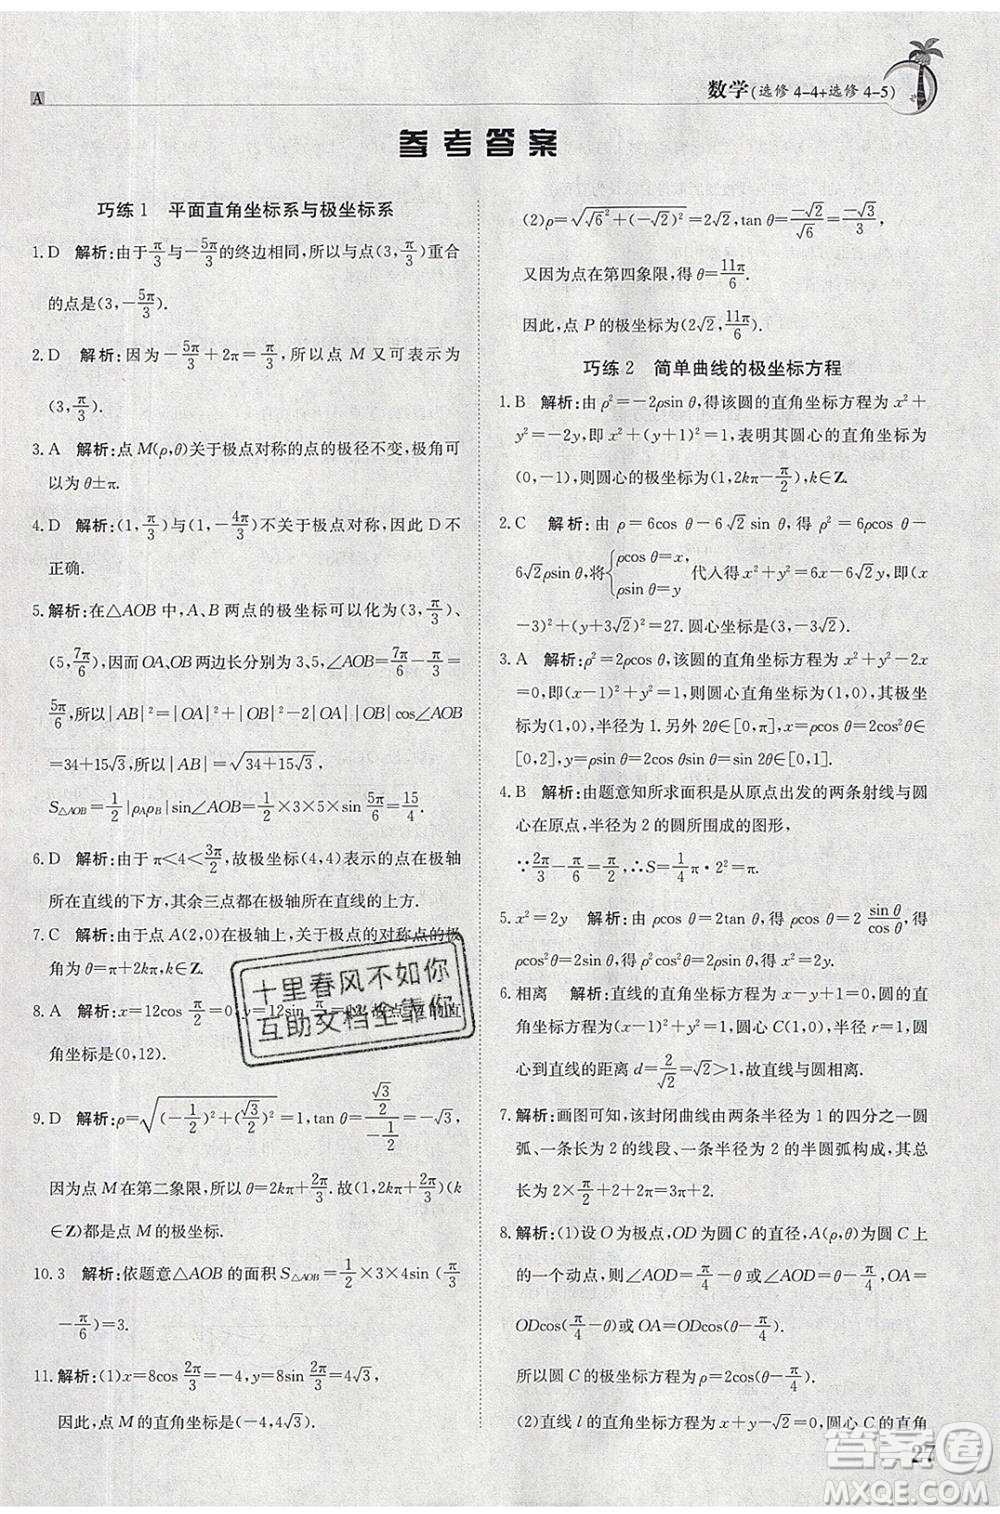 数学(选修 4-4+选修 4-5)
A
参考答案
巧练 1　平面直角坐标系与极坐标系
1. D　解析:由于π/3与-5π/3的终边相同,所以与点(3,π/3)重合
的点是(3,-5π/3).
2. D　解析:因为-5π/3+2π=π/3,所以点 M 又可表示为
(3,π/3).
3. A　解析:点 M(ρ,θ)关于极点对称的点的极径不变,极角可
以为 θ±π.
4. D　解析:(1,π/3)与(1,-4π/3)不关于极点对称,因此 D 不
正确.
5. 解析:在△AOB 中,A、B 两点的极坐标可以化为(3,π/3)、
(5,7π/6),因而 OA、OB 两边长分别为 3、5,∠AOB=7π/6-π/3=
5π/6,所以|AB|²=|OA|²+|OB|²-2|OA||OB|cos∠AOB
=34+15√3,所以|AB|=√(34+15√3).
S△AOB=1/2|ρAρB|sin∠AOB=1/2×3×5×sin 5π/6=15/4.
6. D　解析:由于 π<4<3π/2,故极坐标(4,4)表示的点在极轴
所在直线的下方,其余三点都在极轴所在直线的上方.
7. C　解析:由于点 A(2,0)在极轴上,关于极点的对称点的极
角为 π+2kπ,k∈Z.
8. A　解析:x=12cos
角坐标是(0,12).
9. D　解析:ρ=√((-1/2)²+(√3/2)²)=1,tan θ=(√3/2)/(-1/2)=-√3.
因为点 M 在第二象限,所以 θ=2kπ+2π/3.故(1,2kπ+2π/3)(k
∈Z)都是点 M 的极坐标.
10. 3　解析:依题意△AOB 的面积 S△AOB=1/2×3×4sin(π/3-
π/6)=3.
11. 解析:(1)x=8cos 2π/3=-4,y=8sin 2π/3=4√3,
因此,点 M 的直角坐标是(-4,4√3).
(2)ρ=√(√6²+(-√2)²)=2√2,tan θ=-√2/√6=-√3/3,
又因为点在第四象限,得 θ=11π/6.
因此,点 P 的极坐标为(2√2,11π/6).
巧练 2　简单曲线的极坐标方程
1. B　解析:由 ρ²=-2ρsin θ,得该圆的直角坐标方程为 x²+
y²=-2y,即 x²+(y+1)²=1,表明其圆心的直角坐标为
(0,-1),则圆心的极坐标为(1,2kπ-π/2),k∈Z.
2. C　解析:由 ρ=6cos θ-6√2sin θ,得 ρ²=6ρcos θ-
6√2ρsin θ,将{ρcos θ=x, ρsin θ=y 代人得 x²+y²=6x-6√2y,即(x
-3)²+(y+3√2)²=27.圆心坐标是(3,-3√2).
3. A　解析:ρ²=2ρcos θ,该圆的直角坐标方程为 x²+y²-2x
=0,即(x-1)²+y²=1,该圆圆心直角坐标为(1,0),其极坐
标为(1,0),半径为 1.另外 2θ∈[0,π],x=ρcos θ=2cos²θ∈
[0,2],y=ρsin θ=2cos θsin θ=sin 2θ∈[0,1].
4. B　解析:由题意知所求面积是从原点出发的两条射线与圆
心在原点,半径为 2 的圆所围成的图形,
∵2π/3-π/6=π/2,∴S=1/4π·2²=π.
5. x²=2y　解析:由 ρcos θ=2tan θ,得 ρcos θ=2 sin θ/cos θ,得
ρ²cos²θ=2ρsin θ,即 x²=2y.
6. 相离　解析:直线的直角坐标方程为 x-y+1=0,圆的直
角坐标方程为(x-1)²+y²=1,圆心 C(1,0),半径 r=1,圆
心到直线的距离 d=2/√2=√2>1,故直线与圆相离.
7. 解析:画图可知,该封闭曲线由两条半径为 1 的四分之一圆
弧、一条长为 2 的线段、一条半径为 2 的半圆弧构成,其长
为 2×π/2+2+2π=2+3π.
8. 解析:(1)设 O 为极点,OD为圆 C 的直径,A(ρ,θ)为圆 C 上
的一个动点,则∠AOD=π/4-θ或∠AOD=θ-π/4,OA=
ODcos(π/4-θ)或 OA=ODcos(θ-π/4),
所以圆 C 的极坐标方程为 ρ=2√2cos(θ-π/4).
(2)直线 l 的直角坐标方程为 x+y-7=0,圆心 C 的直角
十里春风不如你
互助文档全靠你
答案圈
27
MXQE.COM